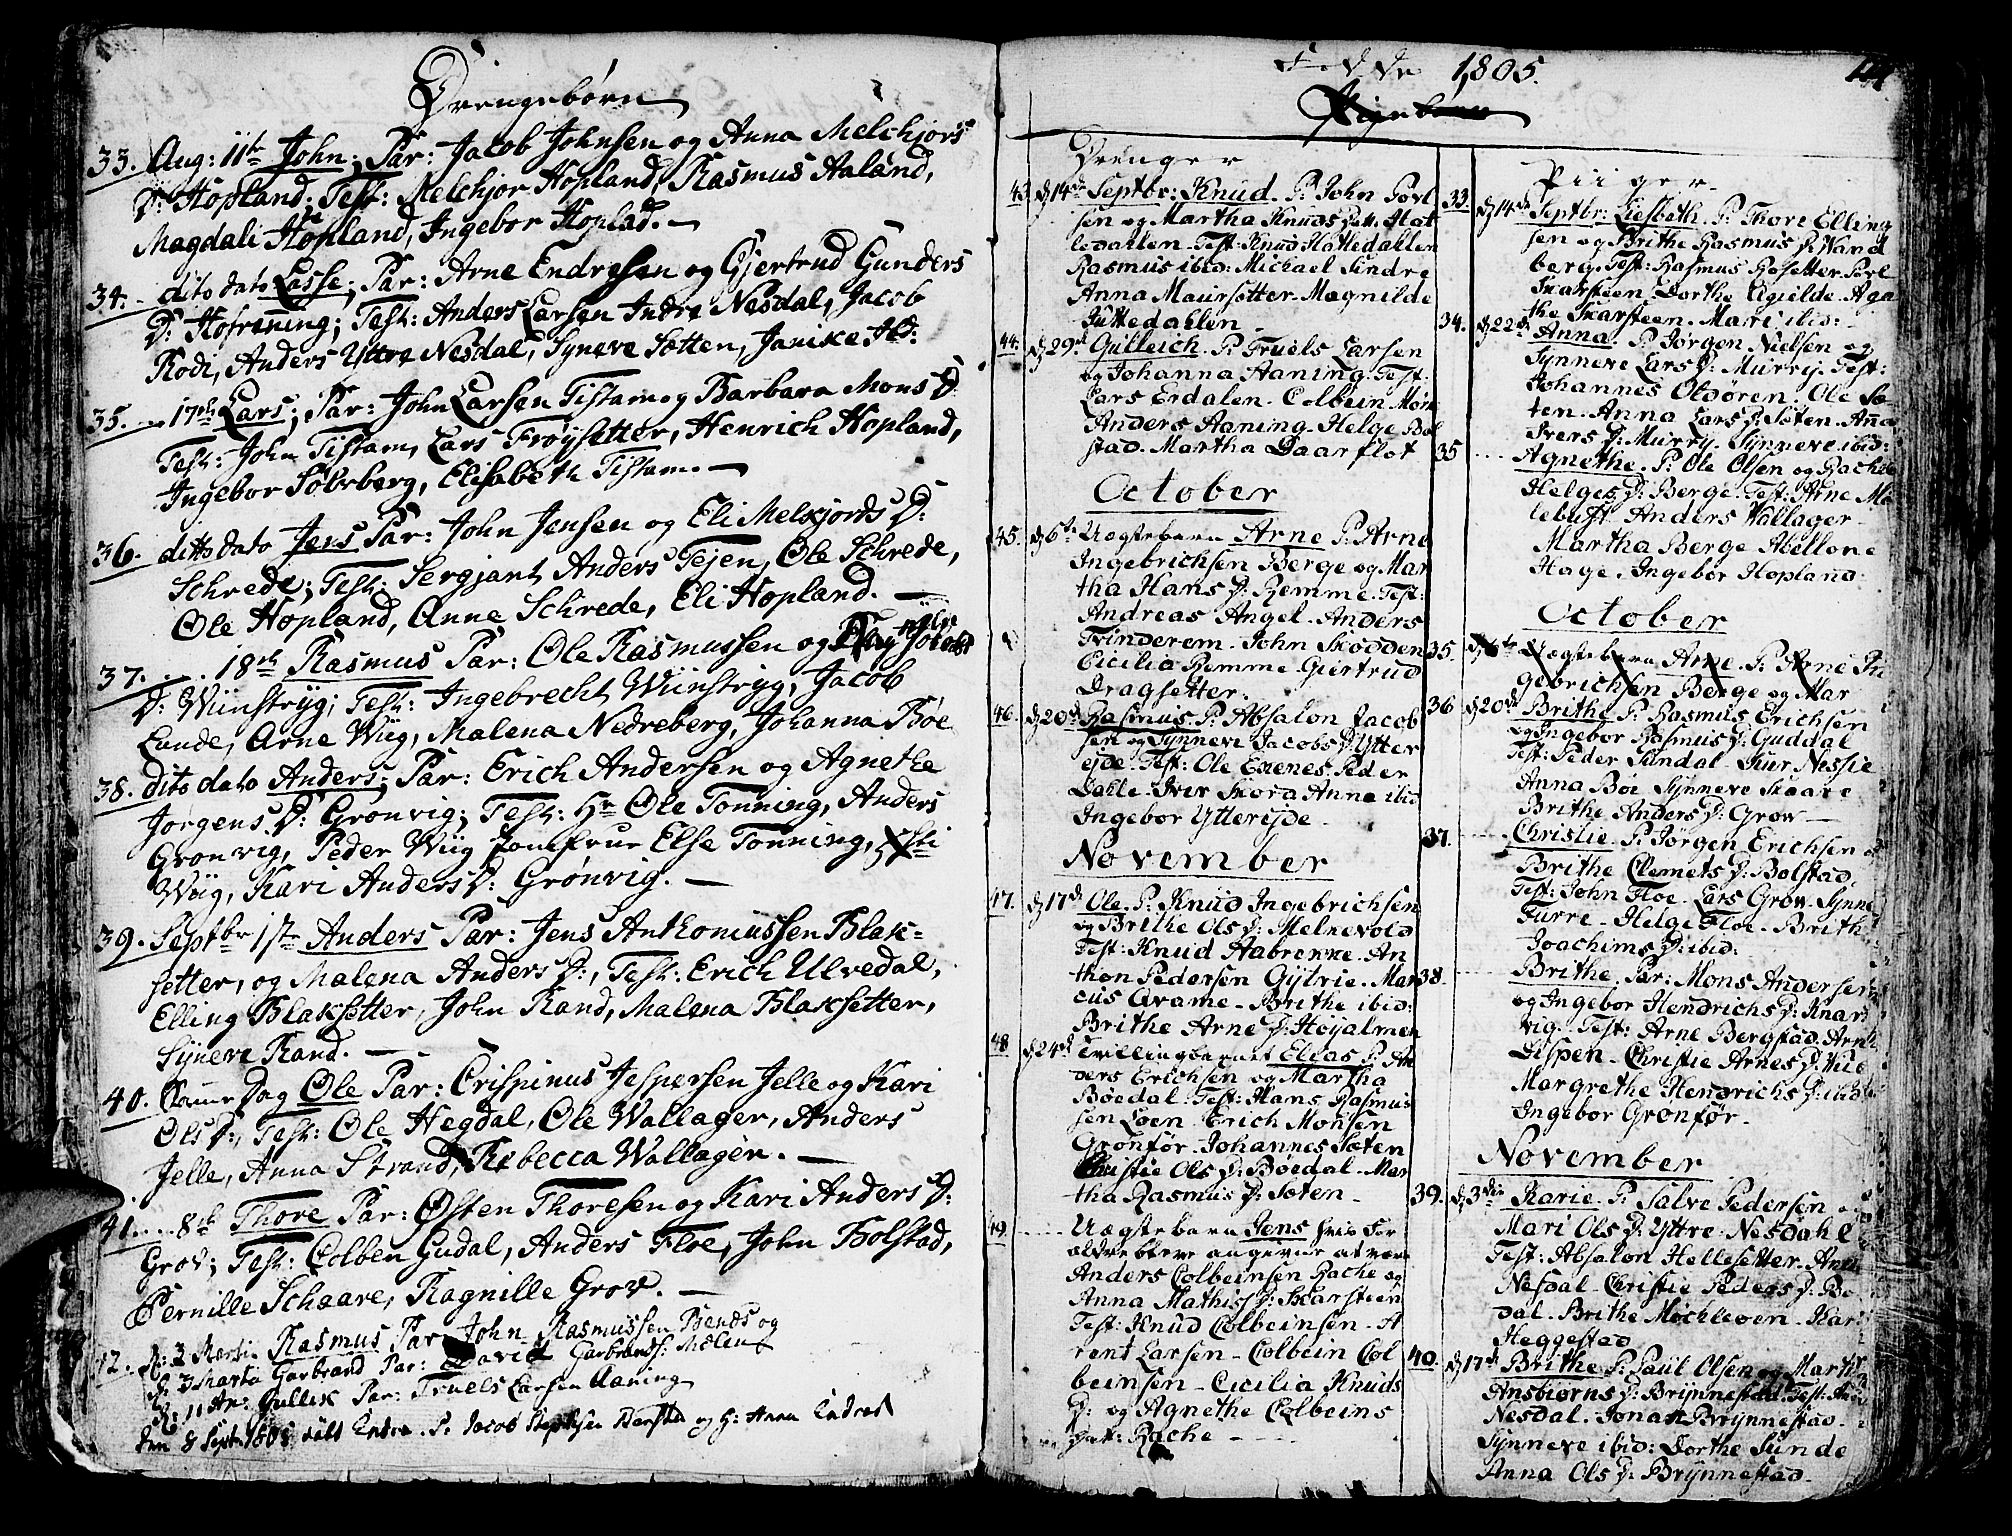 Drengebørn
33. Aug: 11te John; Par: Jacob Johnsen og Anna Melchjors
D: Hopland; Test: Melchjor Hopland, Rasmus Aaland,
Magdali Hopland, Ingebor Hoplad. —
34. - dito dato Lasse; Par: Arne Endresen og Gjertrud Gunders
D: Hofrenning; Test: Anders Larsen Indre Nesdal, Jacob
Rodi, Anders Yttre Nesdal, Syneve Sætten, Janike
35. 17de Lars; Par: John Larsen Tistam og Barbara Mons D:
Test: John Tistam, Lars Frøysetter, Henrich Hopland,
Ingebor Solrberg, Elisabeth Tistam. —
36. ditto dato Jens Par: John Jensen og Eli Melkjords D:
Schrede; Test: Sergjant Anders Tejen, Ole Schrede,
Ole Hopland, Anne Schrede, Eli Hopland. —
37. 18de Rasmus Par: Ole Rasmussen og
D: Wiinstryg; Test: Ingebrecht Wiinstryg, Jacob
Lunde, Arne Wiig, Malena Nedreberg, Johanna Bøe
38. dito dato Anders; Par: Erich Andersen og Agnethe
Jorgens D: Gronvig; Test: Hr Ole Tonning, Anders
Gronvig, Peder Wiig Jomfrue Else Tonning,
Wiig, Kari Anders D: Grønvig. —
39. Septbr 1ste Anders Par: Jens Anthoniussen Blak=
setter, og Malena Anders D:, Test: Erich Ulvedal,
Elling Blaksetter, John Rand, Malena Blaksetter,
Syneve Rand. —
40. Samme Dag Ole Par: Crispinus Jespersen Jelle og Kari
Ols D:, Test: Ole Hegdal, Ole Wallager, Anders
Jelle, Anna Strand, Rebecca Wallager. —
41. 8de Thore Par: Østen Thoresen og Kari Anders D:
Grov; Test: Colben Gudal, Anders Floe, John Bolstad,
Pernille Schaare, Ragnille Grov. —
42. Rasmus Par John Rasmussen
D: 3 Marta Garbrand Par: David Garbrands:
D: 11 Gullik Par: Truels Larsen Aaning
den 8 Sept: Endre P: Jacob og H: Anna
1805.
Drenger
43. d 14de Septbr: Knud. P: John Povl
sen og Martha Knuds Dtt. Hat
ledahlen. Test: Knud Hattedahlen
Rasmus ibid: Michael Sindre
Anna Maursetter. Magnilde
Juttedahlen
44. d 29d Gulleich. P: Truels Larsen
og Johanna Aaning. Test:
Lars Eidalen. Colbein
Anders Aaning. Helge Bol
stad. Martha Daarflot
October
45. d 6te Uægtebarn Arne P: Arne
Ingebrichsen Berge og Mar
tha Hans D: Remme. Test:
Andreas Angel. Anders
Tvinderem. John Skodden
Cicilia Remme Giertrud
Dragsetter.
46. d 20de Rasmus P: Absalon Jacob
sen og Synneve Jacobs D: Ytter
ejde. Test: Ole Evenes. Peder
Dahle. Iver Skora Anna ibid
Ingebor Ytterejde.
November
47. d 17de Ole. P: Knud Ingebrichsen
og Brithe Ols D: Melnevold
Test: Knud Aabrenne. An
thon Pedersen Gytrie. Mar
cus Qvame. Brithe ibid:
Brithe Arne D: Høyalmen
48. d 24de Tvillingbarnet Elias P: An
ders Erichsen og Martha
Bøedal. Test: Hans Rasmus
sen Loen. Erich Monsen
Grønfør. Johannes Sæten
Christie Ols D: Bøedal. Mar
tha Rasmus D: Sæten.
49. Uægtebarn Jens hvis For
ældre bleve angevne at være
Anders Colbeinsen Rache og
Anna Mathis D: Skarsteen
Test: Knud Colbeinsen. A
rent Larsen. Colbein Col
beinsen. Cicilia Knuds
D: og Agnethe Colbeins
Dat: Rache
Piiger
33. d 14de Septbr: Liesbeth. P: Thore Elling
sen og Brithe Rasmus D: Wand
berg. Test: Rasmus Rosetter. Povl
Skarsteen. Dorthe Agilde. Aga
the Skarsteen. Mari ibid:
34. d 22de Anna. P: Jørgen Nielsen og
Synneve Lars D: Murry. Test:
Johannes Oldøren. Ole Sæ
ten. Anna Lars D: Sæten. Anna
Ivers D: Murry. Synneve ibid:
35 Agnethe. P: Ole Olsen og Rachel
Helges D: Berge. Test: Arne Mæ
lebust Anders Wallager
Martha Berge Abellone
Hage. Ingebor Hopland:
October
35. d 6te Uægtebarn Arne P: Arne In
gebrichsen Berge og Mar
36 d 20de Brithe P: Rasmus Erichsen
og Ingebor Rasmus D: Guddal
Test: Peder Sandal Nessie
Anna Bøi Synneve Skaare
Brithe Anders D: Grov
37. Christie. P: Jørgen Erichsen
Brithe Clemets D: Bolstad,
Test: John Floe. Lars Grov. Synne
Furre. Helge Floe. Brith
Joachims D: ibid:
38. Brithe. Par: Mons Andersen
og Ingebor Hendrichs D: Knar
vig. Test: Arne Bergstad. Arnt
Lispen. Christie Arnes D:
Margrethe Hendrichs D: ibid
Ingebor Grønfør.
November
39. d 3die Karie. P: Salve Pedersen
Mari Ols D: Yttre Nesdahl
Test: Absalon Hellesetter.
Nesdal. Christie Peders D: Bø
dal. Brithe Mochleven. Kar
Heggestad
40. d 17de Brithe P: Paul Olsen og Marth
Ansbiorns D: Brynnestad. Test:
Nesdal. Jonas Brynnestad.
Synneve ibid: Dorthe Sunde
Anna Ols D: Brynnestad.